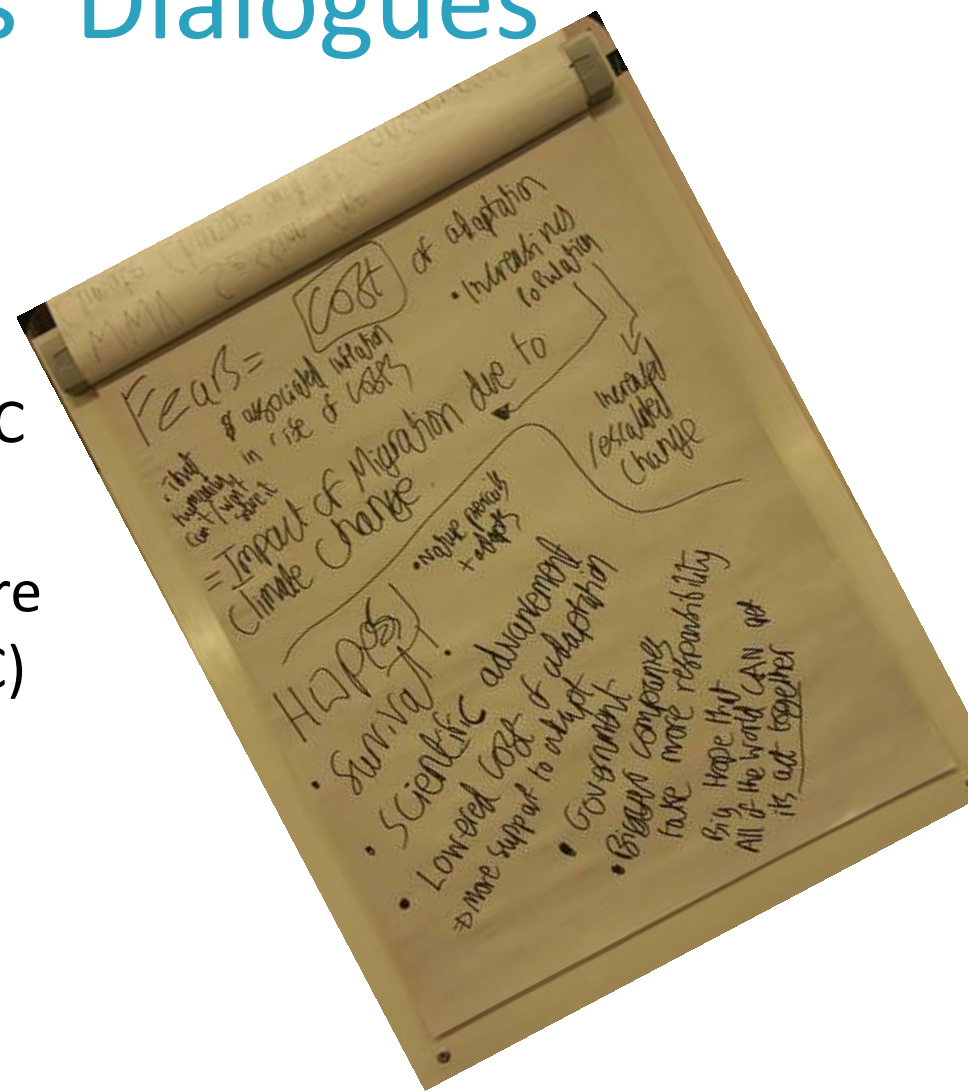 s Dialogues
C
re
C)
Fears =
COST
of adaptation
• Increasing
population
associated inflation
in rise of costs
• That
humanity
can't/won't
solve it
= Impact of Migration due to
climate change
increased
/escalated
change
Hopes!
• Nature prevails
+ adapts
• Survival.
• Scientific advancement
• Lowered cost of adaptation
⇒ more support to adapt
• Government
• Bigger companies
take more responsibility
Big Hope that
All of the world CAN get
its act together